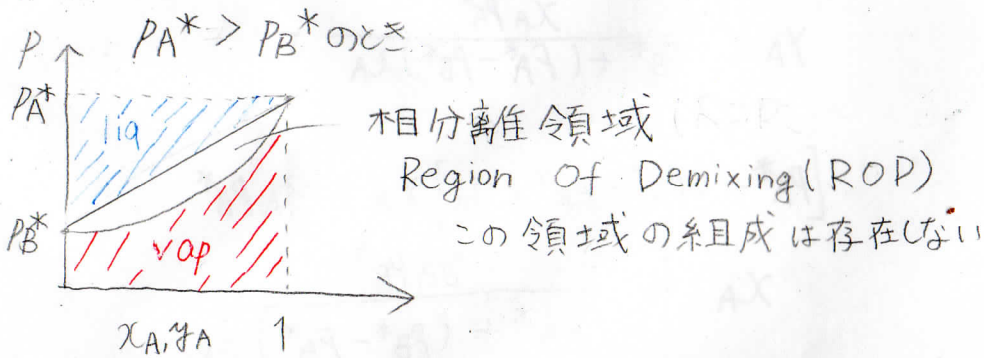 P PA* > PB* のとき
PA*
liq
相分離領域
Region Of Demixing (ROP)
この領域の組成は存在しない
PB*
vap
xA, yA 1